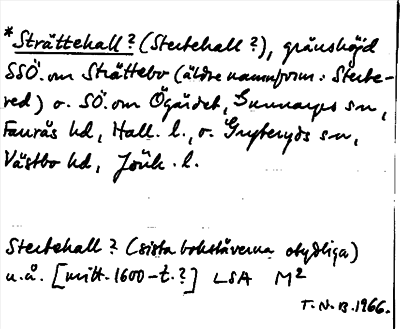 *Strättehall? (Stertehall?), gränshöjd
SSÖ. om Strättebo (äldre namnform: Sterte-
red) o. SÖ. om Ögärdet, Gunnarps sn,
Faurås hd, Hall. l., o. Gryteryds sn,
Västbo hd, Jönk. l.
Stertehall? (sista bokstäverna otydliga)
u.å. [mitt. 1600-t.?] LSA M²
T.N.B. 1966.